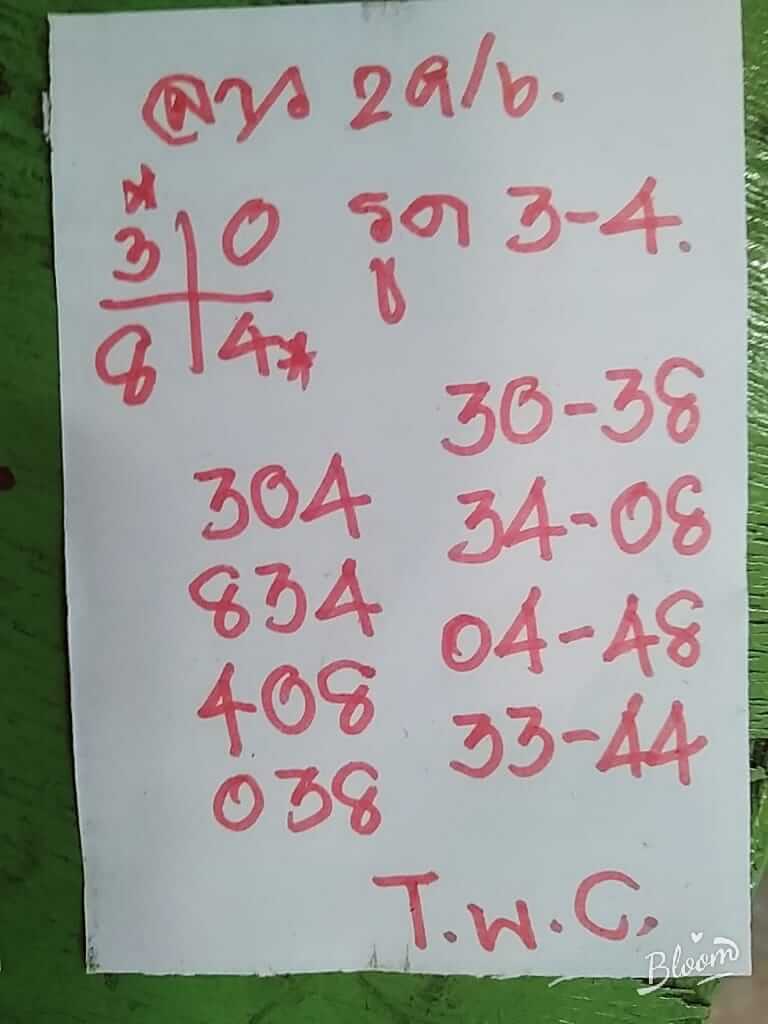 ลาว 29/6.
* 
3 | 0 รูด 3-4.
8 | 4*
30-38
304 34-08
834 04-48
408 33-44
038
T.พ.C.
Bloom